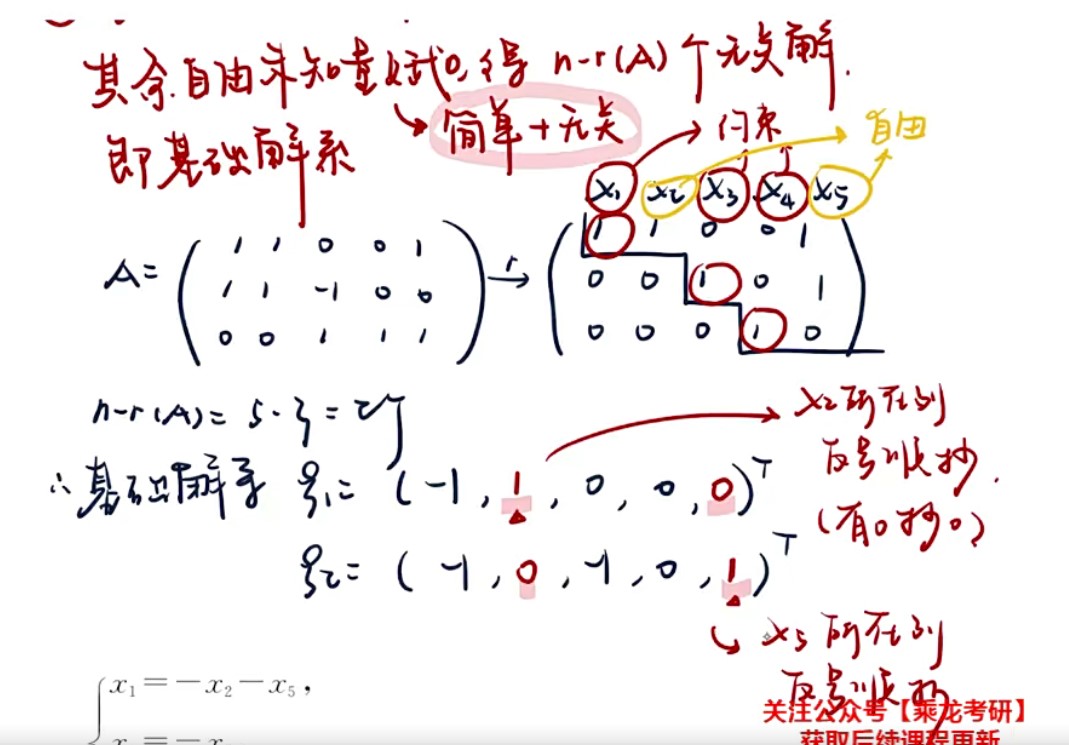 其余自由未知量赋0,得 n-r(A)个无关解.
即基础解系
简单+无关
约束
自由
x₁ x₂ x₃ x₄ x₅
A= ( 1 1 0 0 1 →r ( 1 1 0 0 1
1 1 -1 0 0 0 0 1 0 1
0 0 1 1 1 ) 0 0 0 1 0 )
n-r(A)= 5-3=2个
∴基础解系 ξ₁= (-1, 1, 0, 0, 0)ᵀ
ξ₂= (-1, 0, -1, 0, 1)ᵀ
x₂所在列
反号顺抄.
(有0抄0)
x₅所在列
反号顺抄
x₁=-x₂-x₅,
关注公众号【乘龙考研】
获取后续课程更新